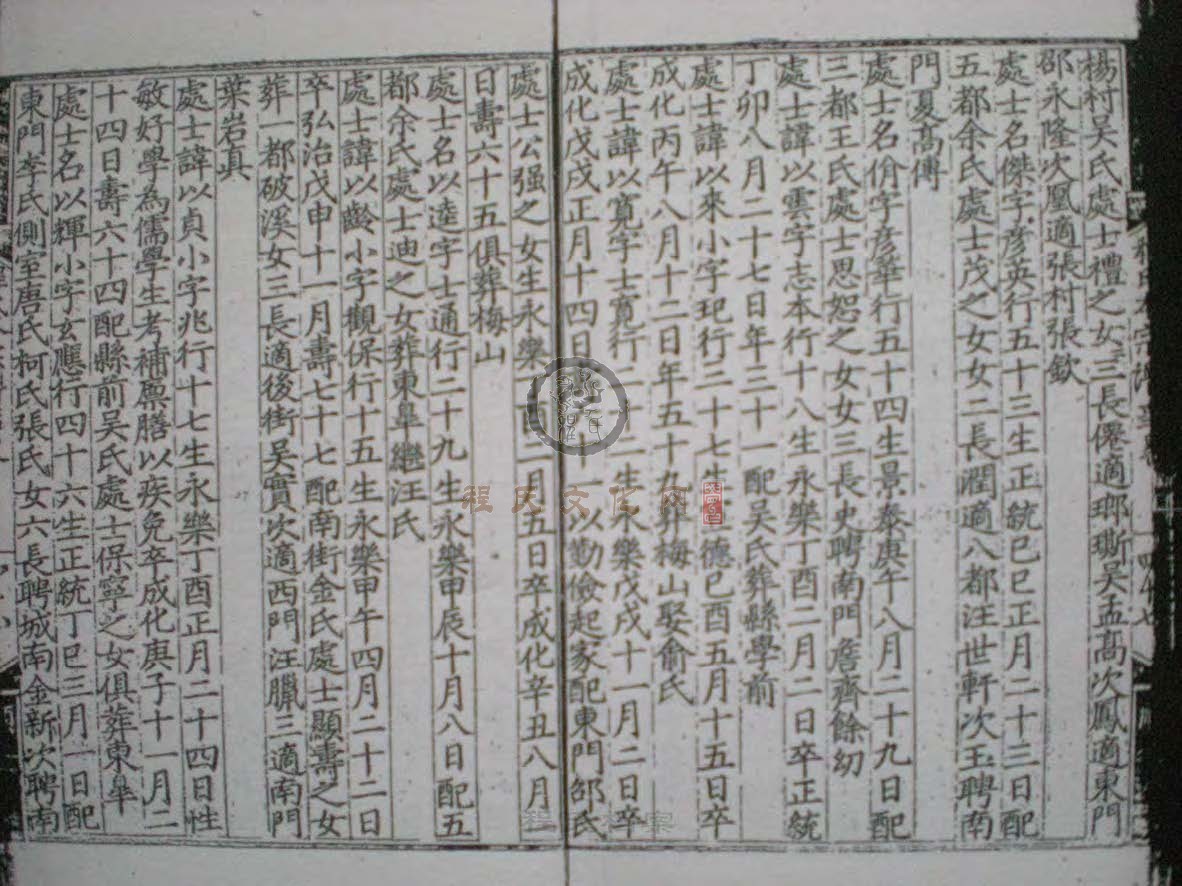 楊村吴氏處士禮之女三長僊適瑯瑘吴孟髙次鳳適東門
邵永隆次凰適張村張欽
處士名傑字彦英行五十三生正統已巳正月二十三日配
五都余氏處士茂之女女二長潤適八都汪世軒次玉聘南
門夏髙傅
處士名佾字彦華行五十四生景泰庚午八月二十九日配
三都王氏處士思恕之女女三長史聘南門詹齊餘幼
處士諱以雲字志本行十八生永樂丁酉二月二日卒正統
丁卯八月二十七日年三十一配吴氏葬縣學前
處士諱以來小字玘行三十七生德已酉五月十五日卒
成化丙午八月十二日年五十九葬梅山娶俞氏
處士諱以寬字士寬行二十二生永樂戊戌十一月二日卒
成化戊戌正月十四日十一以勤儉起家配東門邵氏
處士公强之女生永樂酉二月五日卒成化辛丑八月二
日壽六十五俱葬梅山
處士名以逵字士通行二十九生永樂甲辰十月八日配五
都余氏處士迪之女葬東臯繼汪氏
處士諱以齡小字觀保行十五生永樂甲午四月二十二日
卒弘治戊申十一月壽七十七配南街金氏處士顯壽之女
葬一都破溪女三長適後街吴實次適西門汪臘三適南門
葉岩真
處士諱以貞小字兆行十七生永樂丁酉正月二十四日性
敏好學為儒學生考補廪膳以疾免卒成化庚子十一月二
十四日壽六十四配縣前吴氏處士保寧之女俱葬東臯
處士名以輝小字玄應行四十六生正統丁巳三月一日配
東門李氏側室唐氏柯氏張氏女六長聘城南金新次聘南
程氏文化网